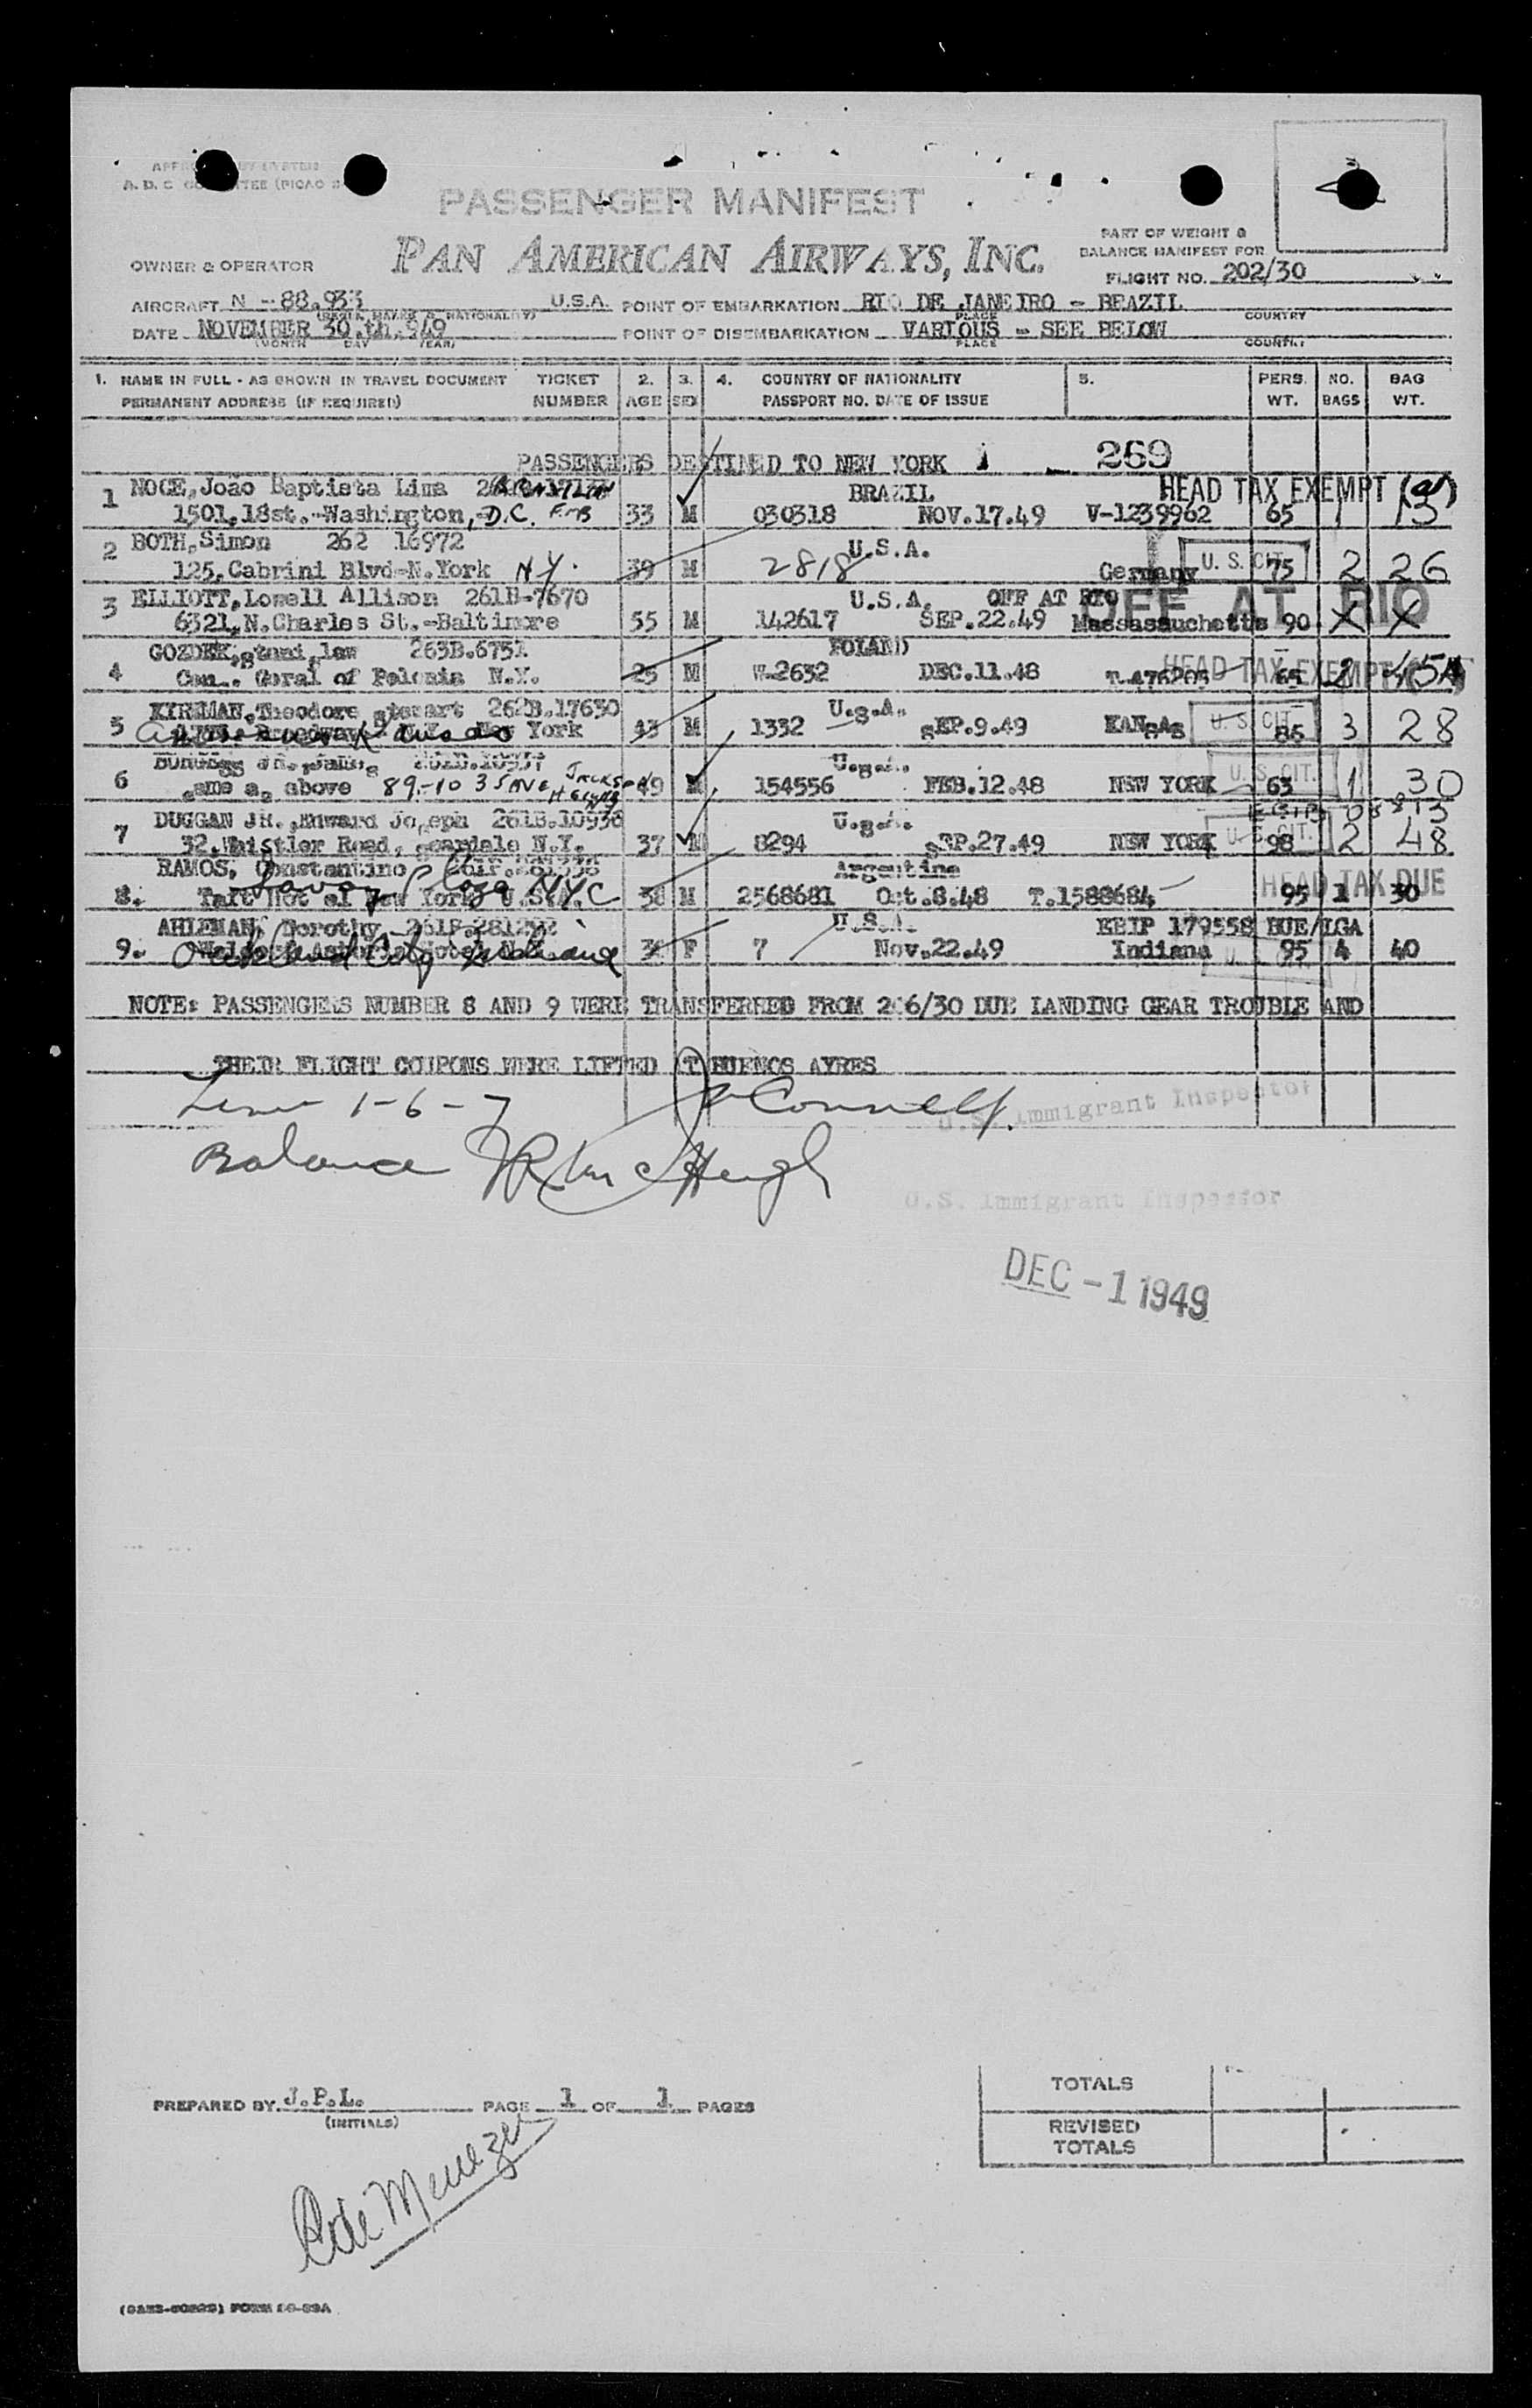 PASSENGER MANIFEST
PAN AMERICAN AIRWAYS, INC.
OWNER & OPERATOR
PART OF WEIGHT &
BALANCE MANIFEST FOR
FLIGHT NO. 202/30
AIRCRAFT N - 88.933 U.S.A. POINT OF EMBARKATION RIO DE JANEIRO - BRAZIL
PLACE COUNTRY
DATE NOVEMBER 30.th.949 POINT OF DISEMBARKATION VARIOUS - SEE BELOW
(MONTH DAY YEAR) PLACE COUNTRY
1. NAME IN FULL - AS SHOWN IN TRAVEL DOCUMENT TICKET 2. 3. 4. COUNTRY OF NATIONALITY 5. PERS. NO. BAG
PERMANENT ADDRESS (IF REQUIRED) NUMBER AGE SEX PASSPORT NO. DATE OF ISSUE WT. BAGS WT.
PASSENGERS DESTINED TO NEW YORK 269
1 NOCE, João Baptista Lima BRAZIL HEAD TAX EXEMPT
1501, 18st.-Washington, D.C. EMB 33 M 030318 NOV.17.49 V-1239962 65 1 13
2 BOTH, Simon 262 16972 U.S.A.
125, Cabrini Blvd-N.York N.Y. 39 M 2818 Germany U.S. CIT. 75 2 26
3 ELLIOTT, Lowell Allison 261B-7670 U.S.A. OFF AT RIO
OFF AT RIO
6321, N.Charles St.-Baltimore 55 M 142617 SEP.22.49 Massassauchetts 90 X X
4 GOZDEK, 263B.6751 POLAND
Gon.. Goral of Polonia N.Y. 25 M W-2632 DEC.11.48 HEAD TAX EXEMPT 65 2
5 KIRKMAN, Theodore stewart 262B.17630 U.s.A.
New York 43 M 1332 sEP.9.49 KANsAs U.S. CIT. 86 3 28
6 U.s.A.
same as above 89-10 35 AVE JACKSON HEIGHTS 49 M 154556 FEB.12.48 NEW YORK U.S. CIT. 63 1 30
7 DUGGAN JR., Edward Joseph 261B.10936 U.s.A.
32, Whistler Road, scardale N.Y. 37 M 8294 sEP.27.49 NEW YORK U.S. CIT. 98 2 48
RAMOS, Constantino Argentine HEAD TAX DUE
Savoy Plaza NYC
8. Taft Hotel New York U.S.A. 38 M 2568681 Oct.8.48 T.1588684 95 1 30
AHLEMAN, Dorothy U.S.A. EBIP 179558 BUE/LGA
9. Oakland City Indiana F 7 Nov.22.49 Indiana 95 4 40
NOTE: PASSENGERS NUMBER 8 AND 9 WERE TRANSFERRED FROM 206/30 DUE LANDING GEAR TROUBLE AND
THEIR FLIGHT COUPONS WERE LIFTED AT BUENOS AYRES
1-6-7
U.S. Immigrant Inspector
Balance
U.S. Immigrant Inspector
DEC -1 1949
TOTALS
REVISED
TOTALS
PREPARED BY J.P.L. PAGE 1 OF 1 PAGES
(INITIALS)